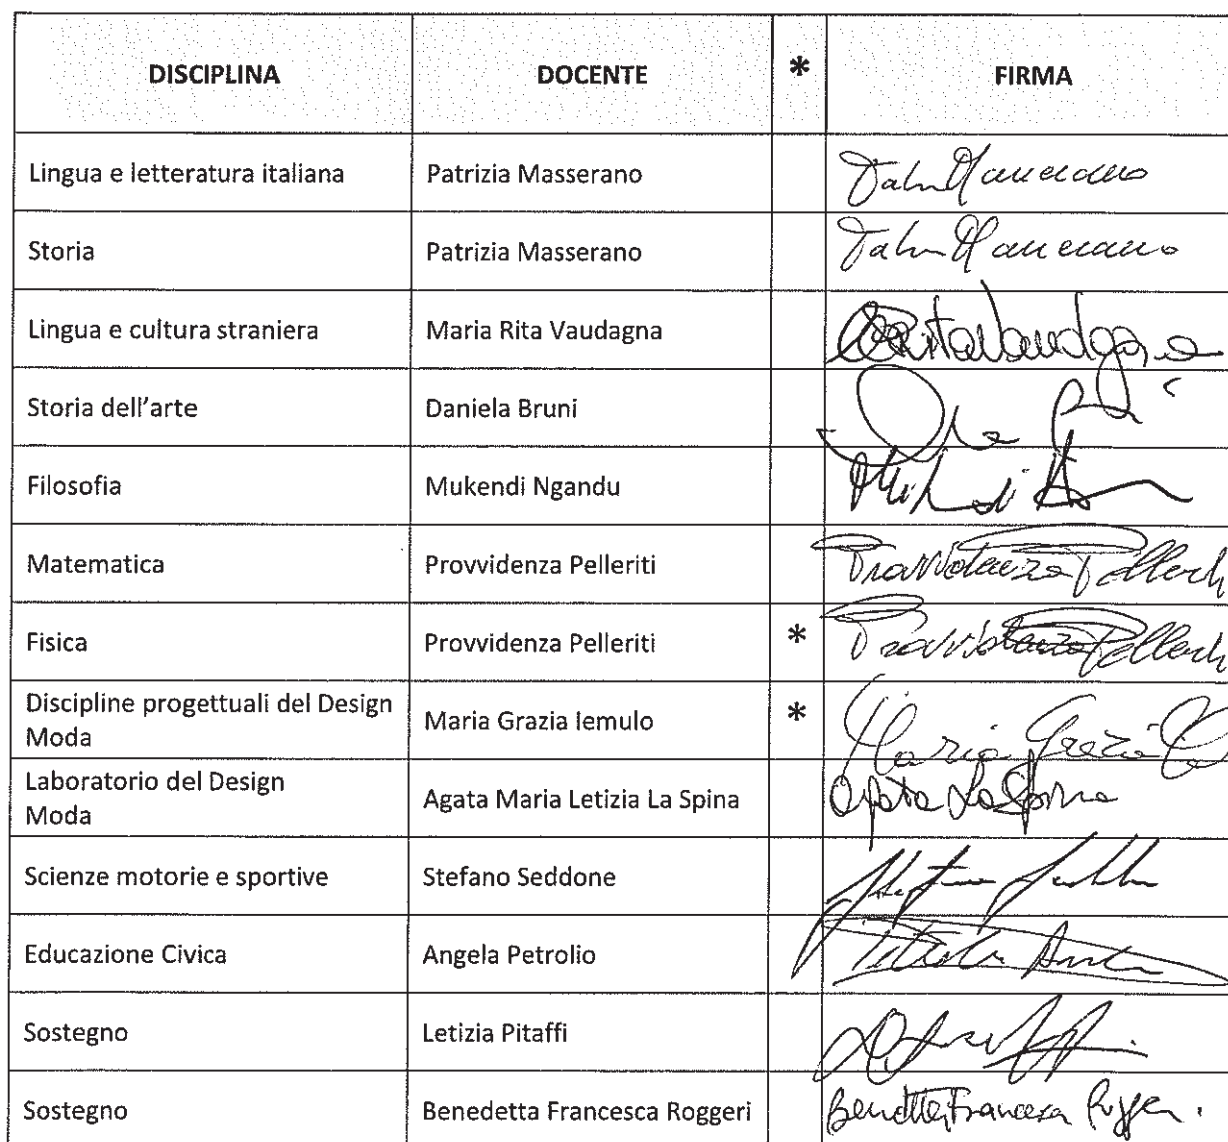 DISCIPLINA DOCENTE * FIRMA
Lingua e letteratura italiana Patrizia Masserano
Storia Patrizia Masserano
Lingua e cultura straniera Maria Rita Vaudagna
Storia dell'arte Daniela Bruni
Filosofia Mukendi Ngandu
Matematica Provvidenza Pelleriti Provvidenza
Fisica Provvidenza Pelleriti * Provvidenza
Discipline progettuali del Design
Moda Maria Grazia Iemulo * Maria Grazia
Laboratorio del Design
Moda Agata Maria Letizia La Spina Agata La Spina
Scienze motorie e sportive Stefano Seddone
Educazione Civica Angela Petrolio
Sostegno Letizia Pitaffi
Sostegno Benedetta Francesca Roggeri Benedetta Francesca